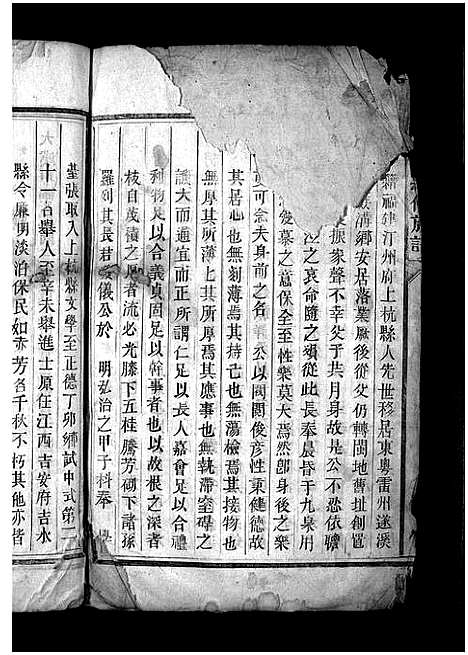 族譜
籍福建汀州府上杭縣人先世移居東粵雷州遂溪
溝鄉安居落業厥後從父仍轉閩地舊址創置
振家聲不幸父子共月身故是公不忍依嚮
泣之哀命隨之殞從此長奉晨昏于九泉用
愛慕之意保全至性樂莫大焉然卽身後之樂
可念夫身前之名 公以閥閱俊彥性秉健德故
其居心也無刻薄焉其持己也無蕩檢焉其接物也
無厚其所薄士其所厚焉其應事也無執帶窒碍之
譏大而通宜而正所謂仁足以長人嘉會足以合禮
利物足以合義貞固足以幹事者也以故根之深者
枝自茂濆之厚者流必光膝下五桂騰芳砌下諸孫
羅列其長君文儀公於 明弘治之甲子科奉
臺張取入上杭縣文學至正德丁卯鄉試中式第二
十一名舉人至辛未舉進士原任江西吉安府吉水
縣令廉明淡治保民如赤芳名千秋不朽其他亦皆